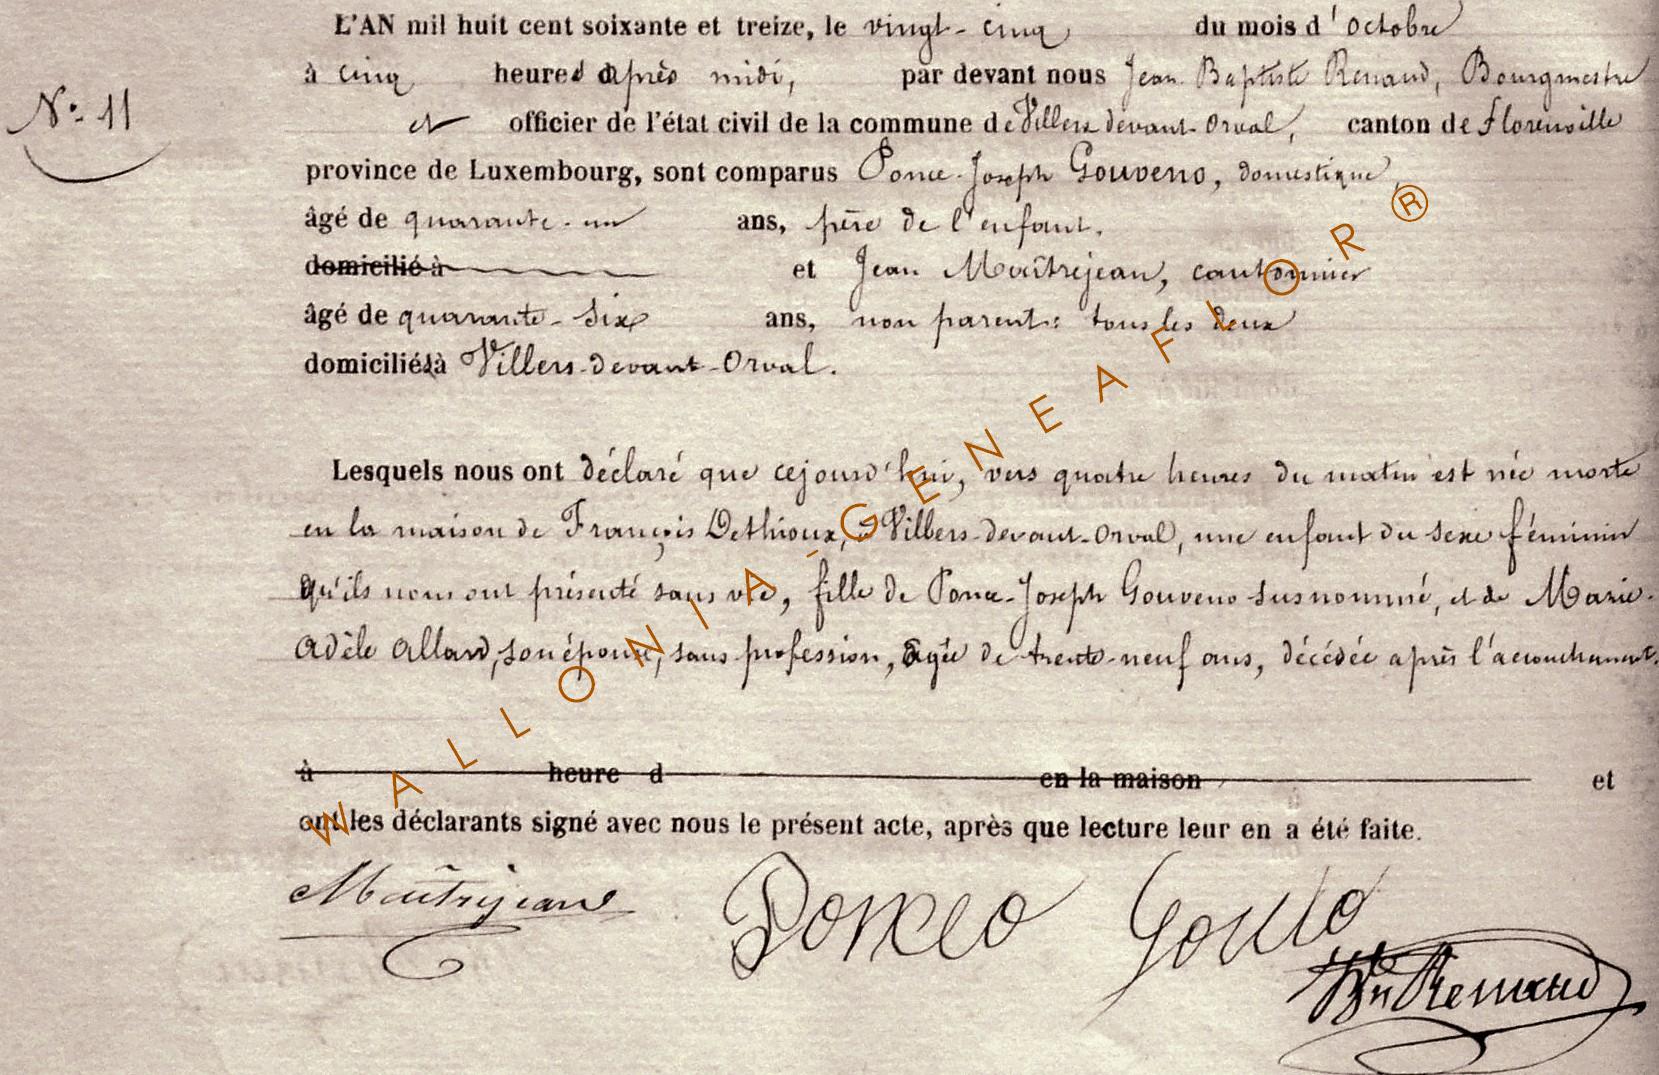 L'AN mil huit cent soixante et treize, le vingt-cinq du mois d'octobre
à cinq heures après midi, par devant nous Jean Baptiste Renaud, Bourgmestre
N°- 11
et officier de l'état civil de la commune de Villers devant-Orval, canton de Florenville
province de Luxembourg, sont comparus Ponce-Joseph Gouveno, domestique,
âgé de quarante-un ans, père de l'enfant.
domicilié à et Jean Maîtrejean, cantonnier
âgé de quarante-six ans, non parent: tous les deux
domiciliés à Villers-devant-Orval.
Lesquels nous ont déclaré que cejourd'hui, vers quatre heures du matin est née morte
en la maison de François Dethioux, à Villers-devant-Orval, une enfant du sexe féminin
qu'ils nous ont présenté sans vie, fille de Ponce-Joseph Gouveno susnommé, et de Marie-
Adèle Allard, son épouse, sans profession, âgée de trente-neuf ans, décédée après l'accouchement.
à heure d en la maison et
ont les déclarants signé avec nous le présent acte, après que lecture leur en a été faite.
Maîtrejean
JBte Renaud
WALLONIA-GENEAFLOR®